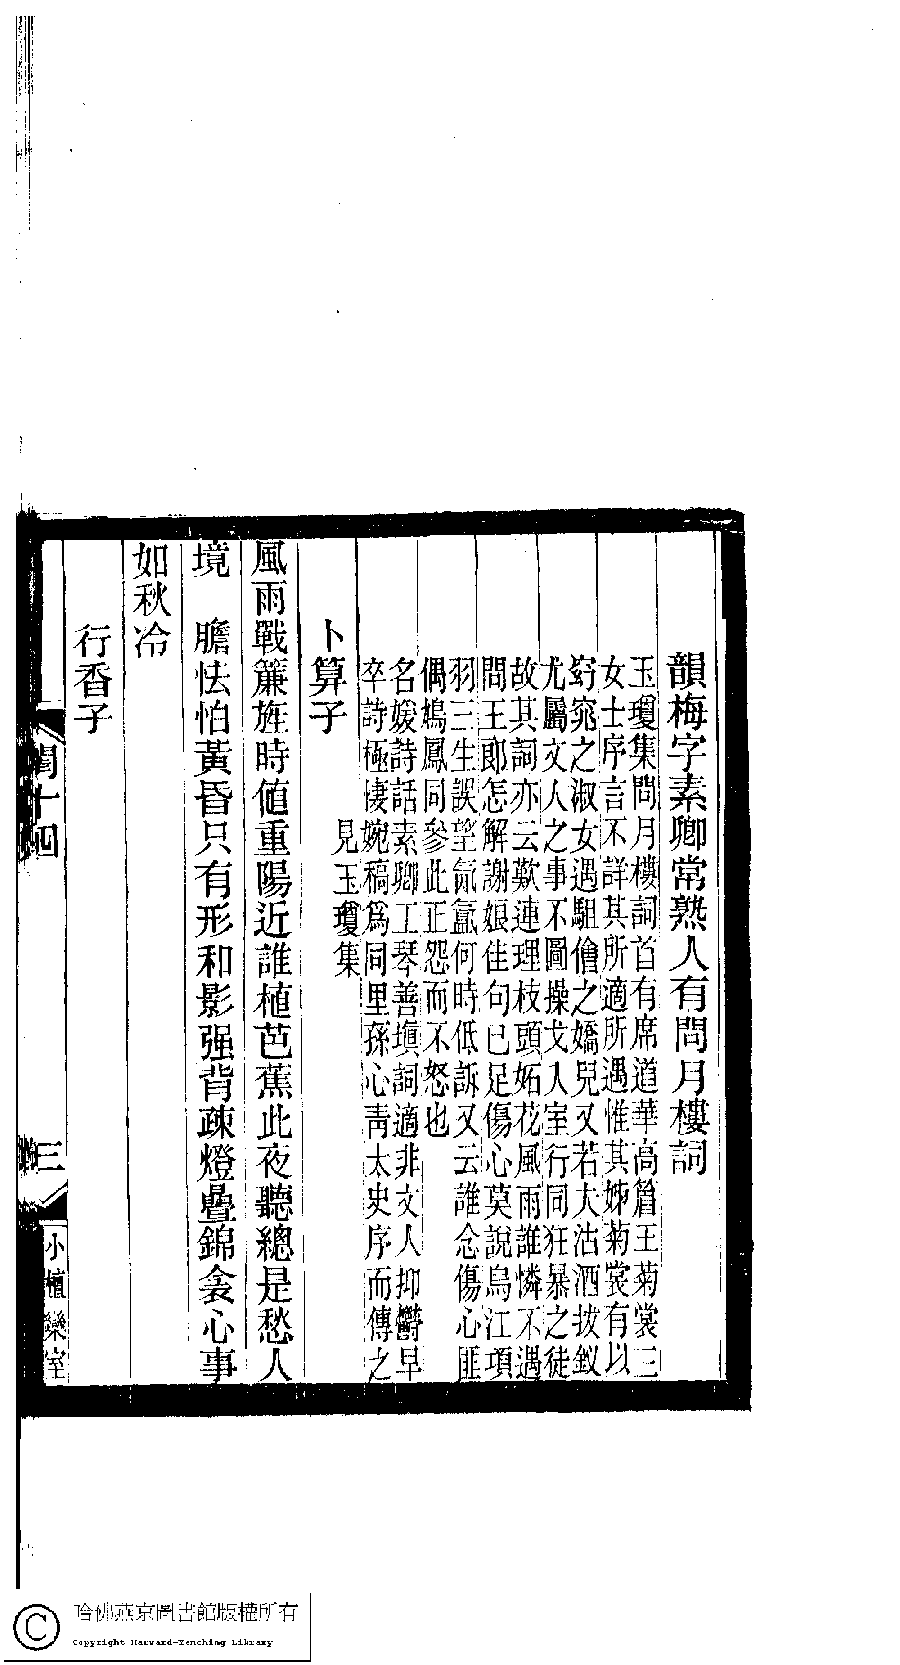 韻梅字素卿常熟人有問月樓詞
玉瓊集問月樓詞首有席道華高篇王菊裳三
女士序言不詳其所適所遇惟其姊菊裳有以
窈窕之淑女遇駔儈之嬌兒又若大沽酒拔釵
尤屬文人之事不圖操戈入室行同狂暴之徒
故其詞亦云歎連理枝頭妬花風雨誰憐不遇
問王郎怎解謝娘佳句已足傷心莫說烏江項
羽三生誤望氤氳何時低訴又云誰念傷心匪
偶鴆鳳同參此正怨而不怒也
名媛詩話素卿工琴善塡詞適非文人抑鬱早
卒詩極悽婉稿爲同里孫心靑太史序而傳之
見玉瓊集
卜算子
風雨戰簾旌時値重陽近誰植芭蕉此夜聽總是愁人
境　膽怯怕黃昏只有形和影强背疎燈疊錦衾心事
如秋冷
行香子
閨十四
三
小檀欒室
哈佛燕京圖書館版權所有
Copyright Harvard-Yenching Library